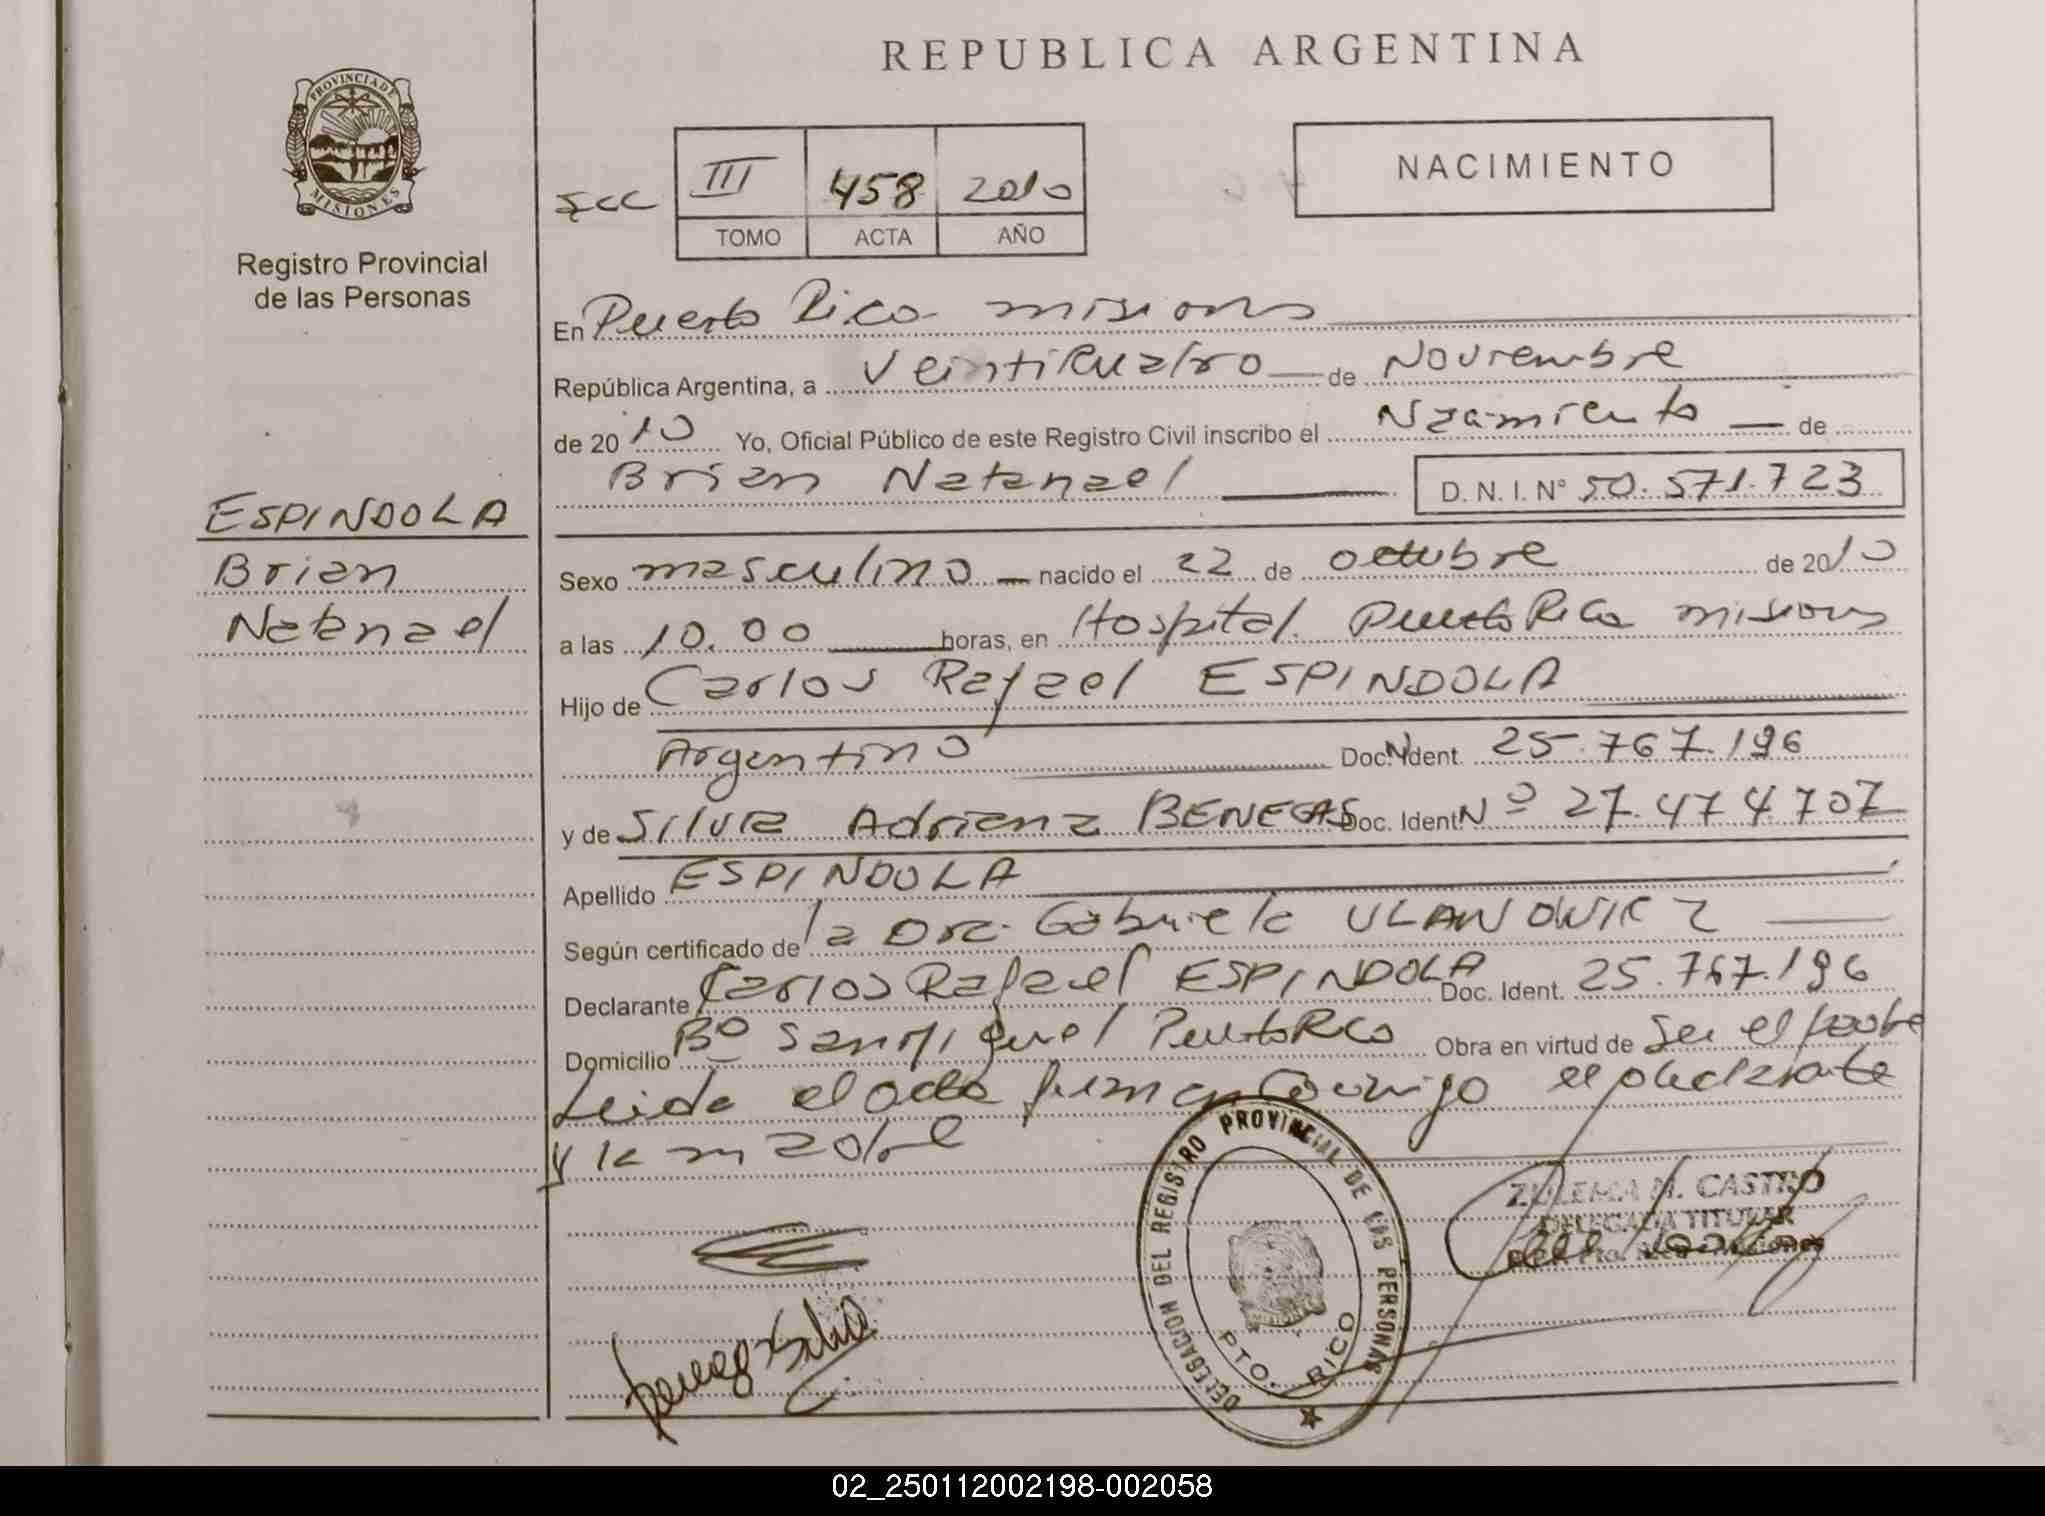 REPUBLICA ARGENTINA
PROVINCIA DE MISIONES
Registro Provincial
de las Personas
NACIMIENTO
III 458 2010
TOMO ACTA AÑO
En Puerto Rico misiones
República Argentina, a Veintikuatro de Noviembre
de 2010 Yo, Oficial Público de este Registro Civil inscribo el Nacimiento de
Brian Natanael D. N. I. N° 50.571.723
ESPINDOLA
Brian
Natanael
Sexo masculino nacido el 22 de octubre de 2010
a las 10.00 horas, en Hospital. Puerto Rico misiones
Hijo de Carlos Rafael ESPINDOLA
Argentino Doc. Ident. Nº 25.767.196
y de Silvia Adriana BENEGAS Doc. Ident. Nº 27.474.707
Apellido ESPINDOLA
Según certificado de la Dra. Gabriela ULANOWICZ
Declarante Carlos Rafael ESPINDOLA Doc. Ident. 25.767.196
Domicilio Bº San Miguel Puerto Rico Obra en virtud de Ser el padre
Leida el acta firman conmigo el declarante
y la madre
DELEGACION DEL REGISTRO PROVINCIAL DE LAS PERSONAS
PTO. RICO
ZULEMA N. CASTRO
DELEGADA TITULAR
Benegas Silvia
02_250112002198-002058